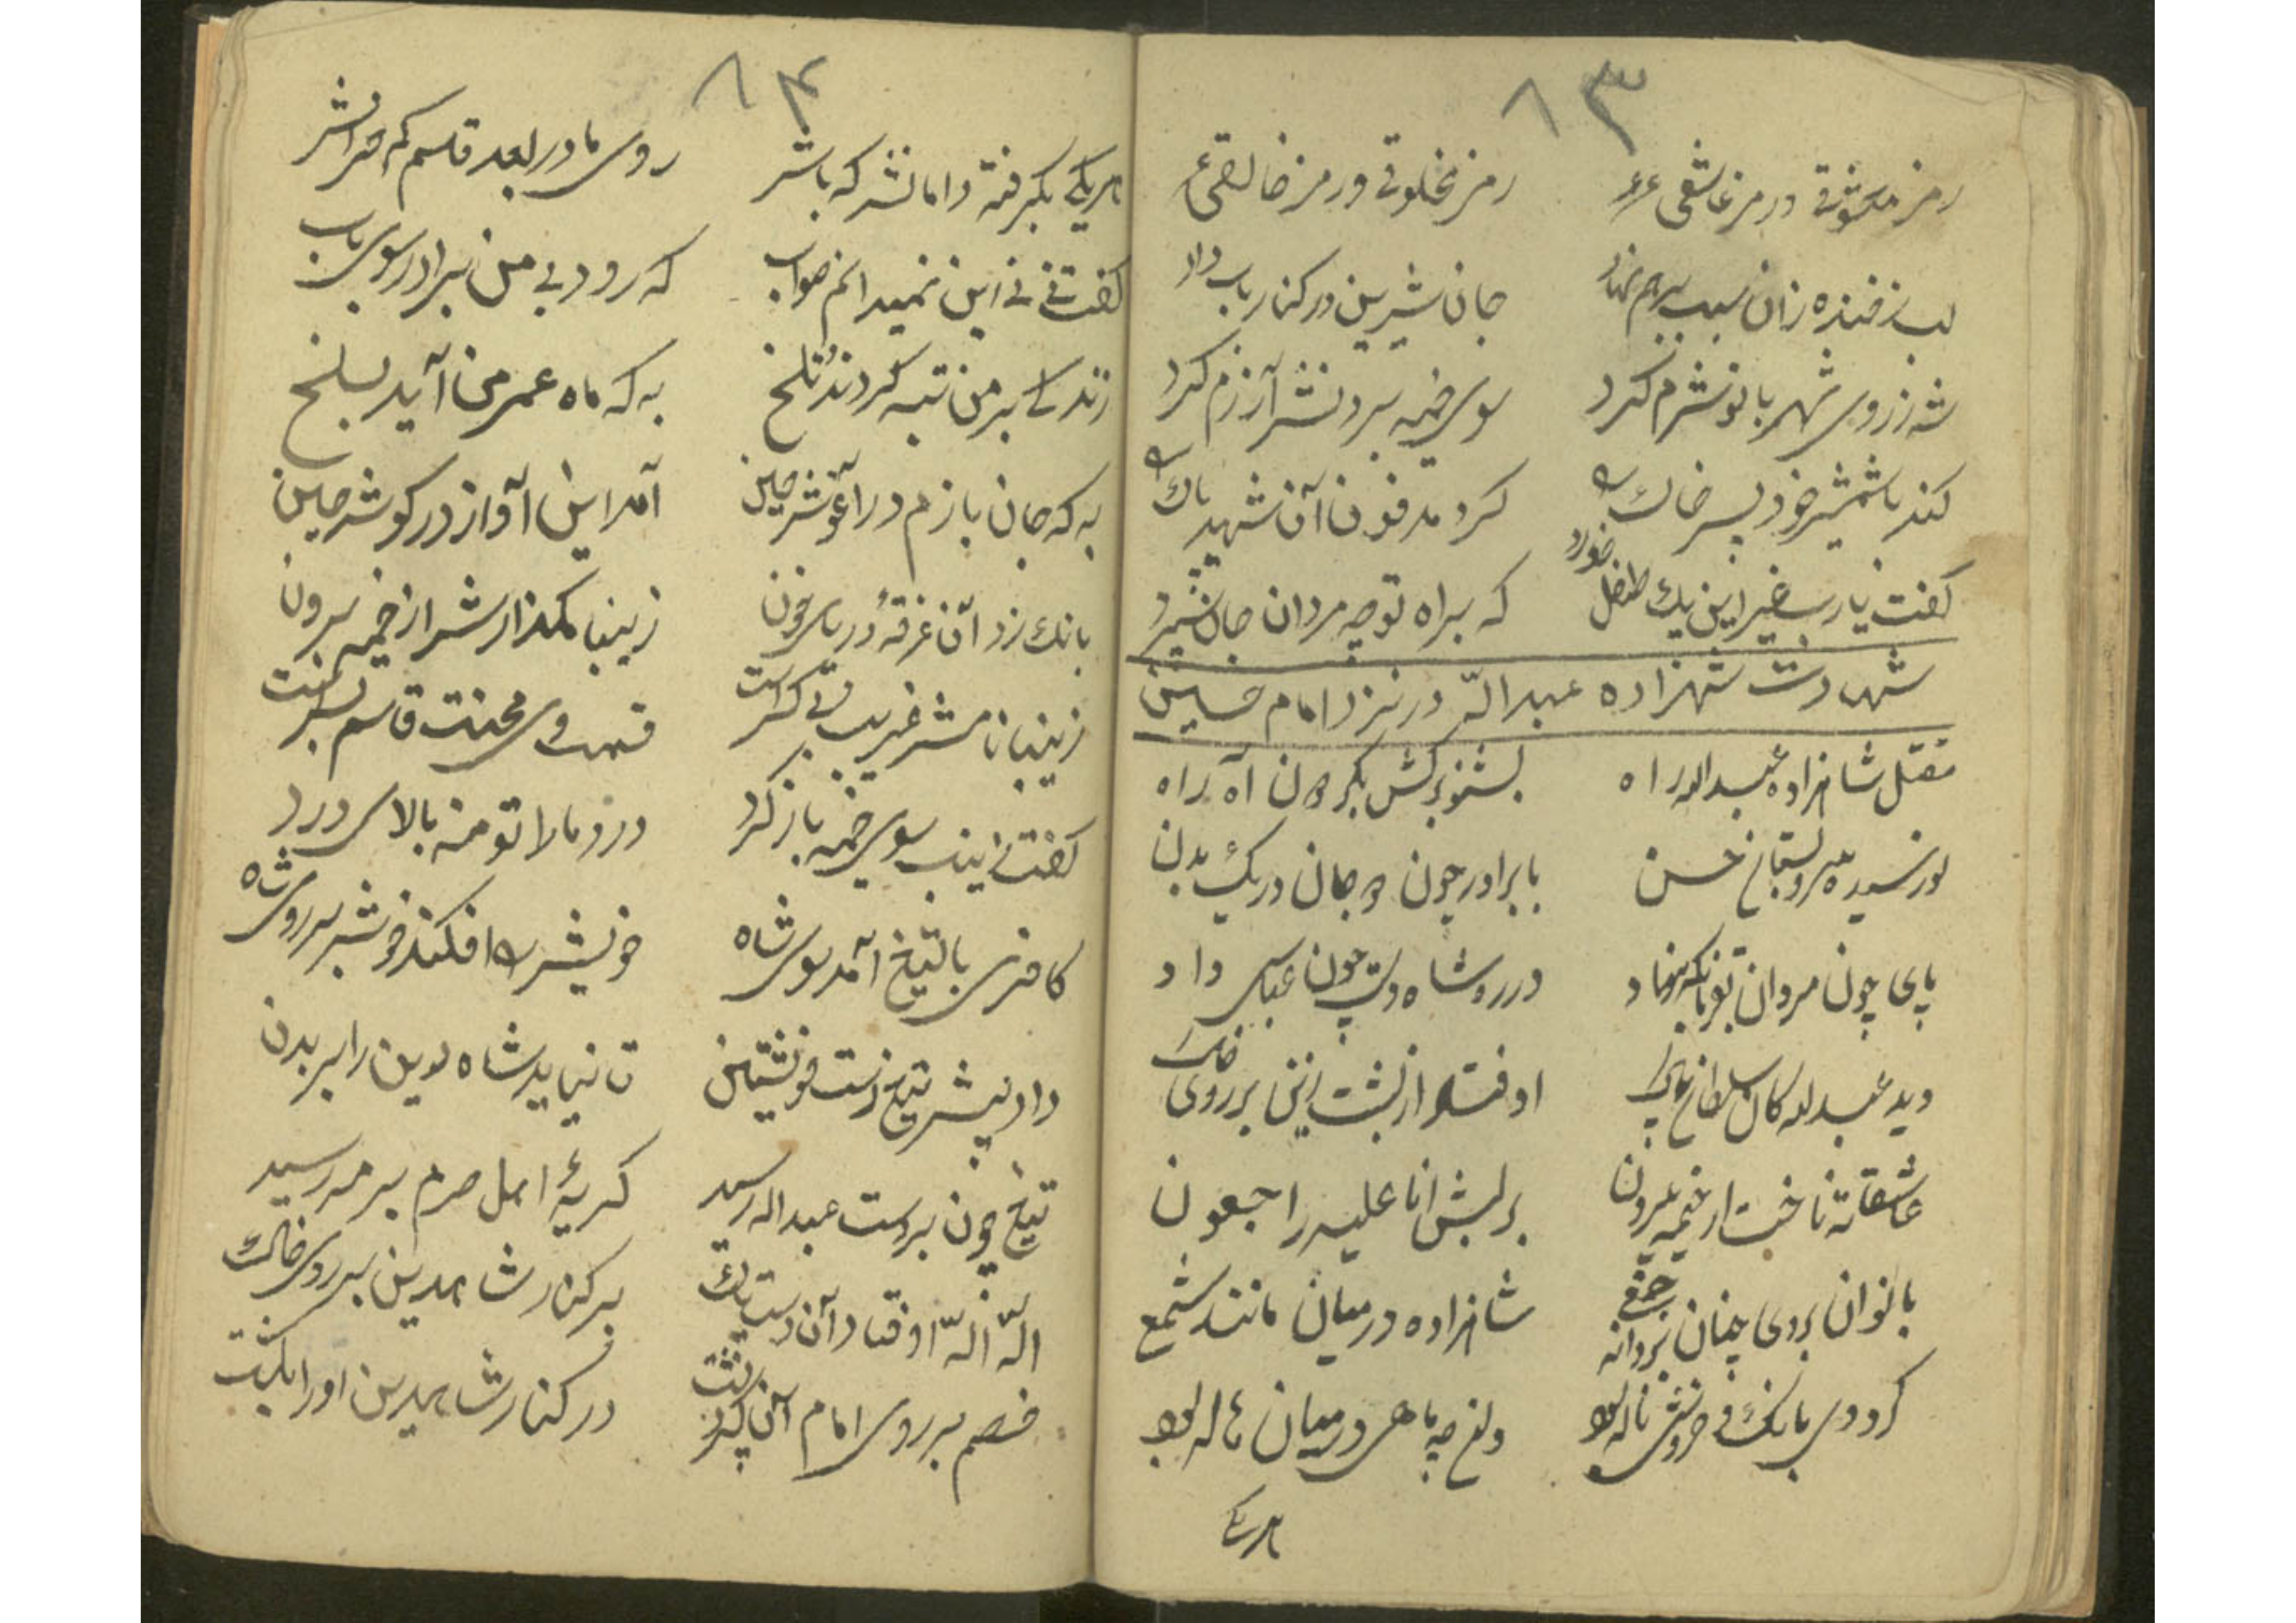 ۸۳
رمز معشوقی و رمز عاشقی رمز مخلوقی و رمز خالقی
لب ز خنده زان سبب برهم نهاد جان شیرین در کنار باب داد
شه ز روی شهربانو شرم کرد سوی خیمه بردنش آزرم کرد
کند با شمشیر خود پس خاک را کرد مدفون آن شهید پاک را
گفت یا رب غیر این یک طفل خورد که براه تو چه مردان جان سپرد
شهادت شهزاده عبدالله در نزد امام حسین
مقتل شاهزاده عبدالله راه بشنو برکش بکردون آه راه
نورسیده سرو بستان حسن با برادر چون دو جان در یک بدن
پای چون مردان نهاد در ره شاه دست چون عباس داد
دید عبدالله کان سلطان پاک اوفتاد از پشت زین بر روی خاک
عاشقانه تاخت از خیمه برون بر لبش انا علیه راجعون
بانوان بر وی چنان پروانه جمع شاهزاده در میان مانند شمع
کرد وی بانک و خروش ناله بود ولنچه ماهی در میان هاله بود
هریکی
۸۴
هریکی بکرفته دامانش که باش روی مادر بعد قاسم کم خراش
گفت نی نی این نمیدانم صواب که رود بی من برادر سوی باب
زندکی بر من تبه کردند تلخ به که ماه عمر من آید بسلخ
به که جان بازم در آغوش حسین آمد این آواز در کوش حسین
بانک زد آن غرقهٔ دریای خون زینبا مکذارش از خیمه برون
زینبا نامش غریب بی کس است قسمت وی محنت قاسم بس است
گفت زینب سوی خیمه باز کرد درد ما را تو منه بالای درد
کافری با تیغ آمد سوی شاه خویش را افکند خوش بر روی شاه
داد پیش تیغ دست خویشتن تا نیاید شاه دین را بر بدن
تیغ چون بر دست عبدالله رسید کریهٔ اهل حرم بر مه رسید
الله الله اوفتاد آن دست پاک بر کنار شاه دین بر روی خاک
خصم بر روی امام آن در کنار شاه دین او را بکشت